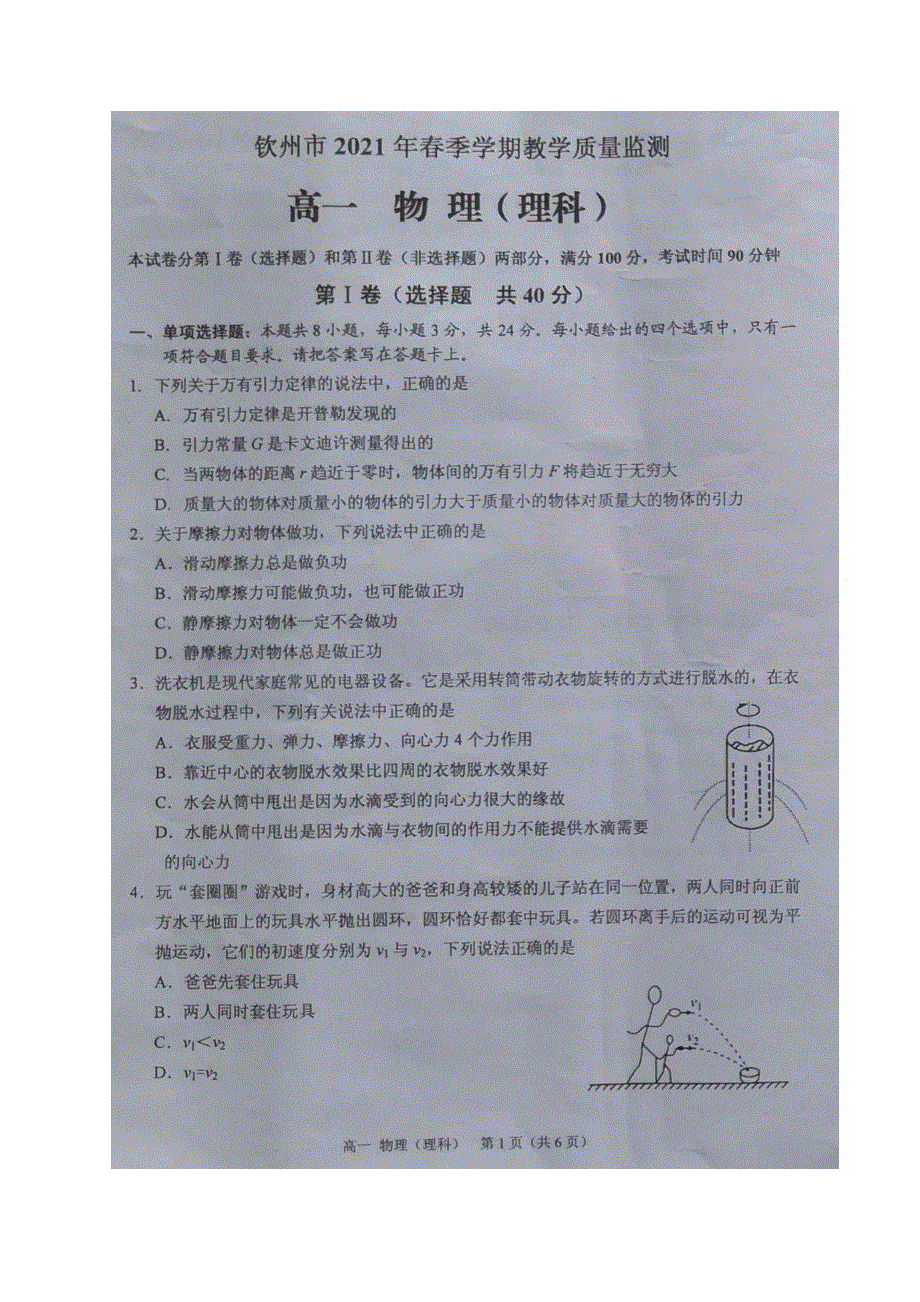 钦州市 2021 年春季学期教学质量监测
高一 物 理（理科）
本试卷分第Ⅰ卷（选择题）和第Ⅱ卷（非选择题）两部分，满分 100 分，考试时间 90 分钟
第Ⅰ卷（选择题 共 40 分）
一、单项选择题：本题共 8 小题，每小题 3 分，共 24 分。每小题给出的四个选项中，只有一
项符合题目要求。请把答案写在答题卡上。
1. 下列关于万有引力定律的说法中，正确的是
A. 万有引力定律是开普勒发现的
B. 引力常量 G 是卡文迪许测量得出的
C. 当两物体的距离 r 趋近于零时，物体间的万有引力 F 将趋近于无穷大
D. 质量大的物体对质量小的物体的引力大于质量小的物体对质量大的物体的引力
2. 关于摩擦力对物体做功，下列说法中正确的是
A．滑动摩擦力总是做负功
B．滑动摩擦力可能做负功，也可能做正功
C．静摩擦力对物体一定不会做功
D．静摩擦力对物体总是做正功
3．洗衣机是现代家庭常见的电器设备。它是采用转筒带动衣物旋转的方式进行脱水的，在衣
物脱水过程中，下列有关说法中正确的是
A．衣服受重力、弹力、摩擦力、向心力 4 个力作用
B．靠近中心的衣物脱水效果比四周的衣物脱水效果好
C．水会从筒中甩出是因为水滴受到的向心力很大的缘故
D．水能从筒中甩出是因为水滴与衣物间的作用力不能提供水滴需要
的向心力
4．玩“套圈圈”游戏时，身材高大的爸爸和身高较矮的儿子站在同一位置，两人同时向正前
方水平地面上的玩具水平抛出圆环，圆环恰好都套中玩具。若圆环离手后的运动可视为平
抛运动，它们的初速度分别为 v₁ 与 v₂，下列说法正确的是
A．爸爸先套住玩具
B．两人同时套住玩具
C．v₁＜v₂
D．v₁=v₂
v₁
v₂
高一 物理（理科） 第 1 页（共 6 页）